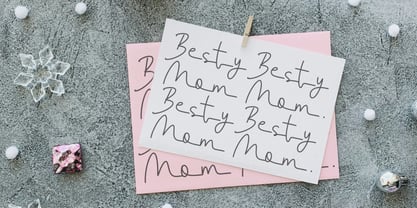 Besty Besty
Mom Mom.
Besty Besty
Mom Mom.
B
M
Mom Mom.